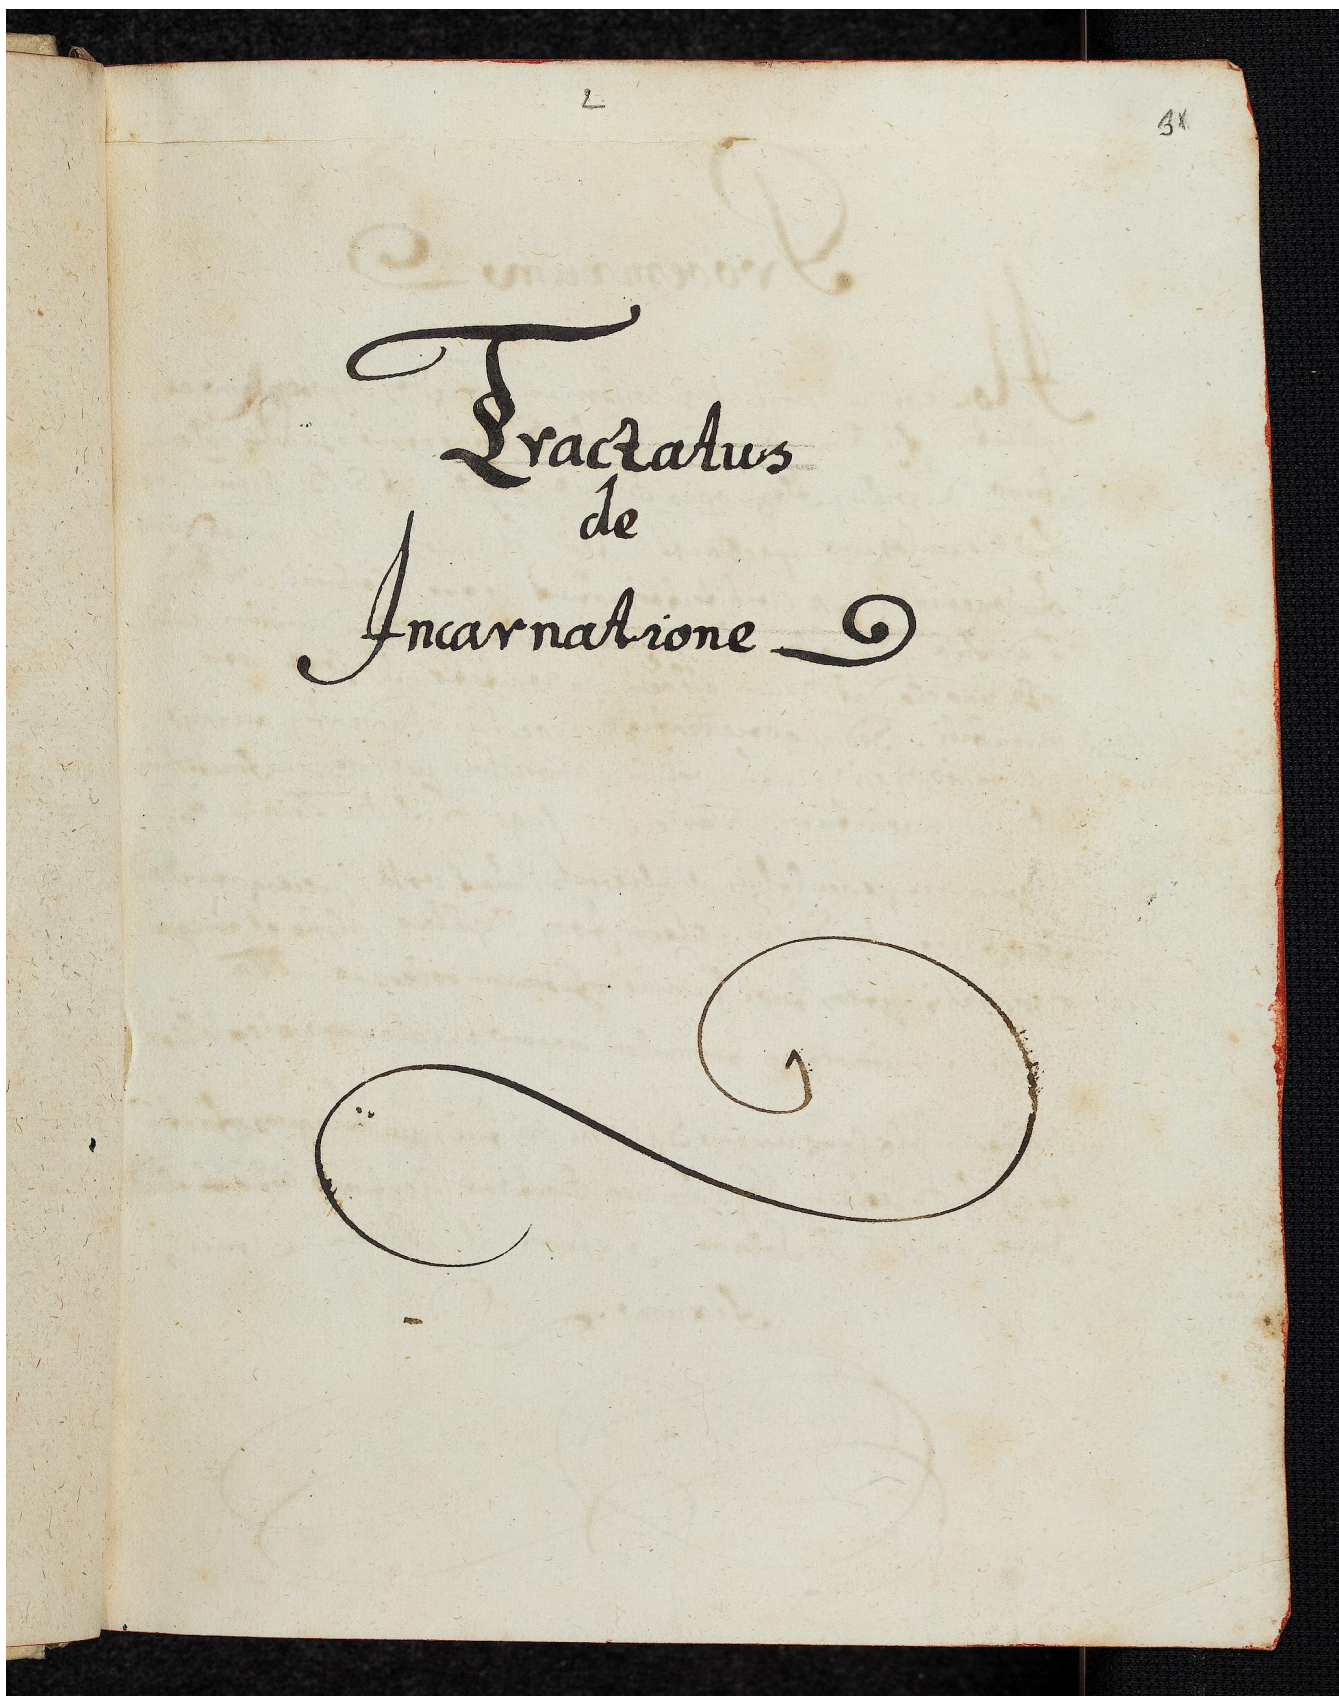 2
Tractatus
de
Incarnatione